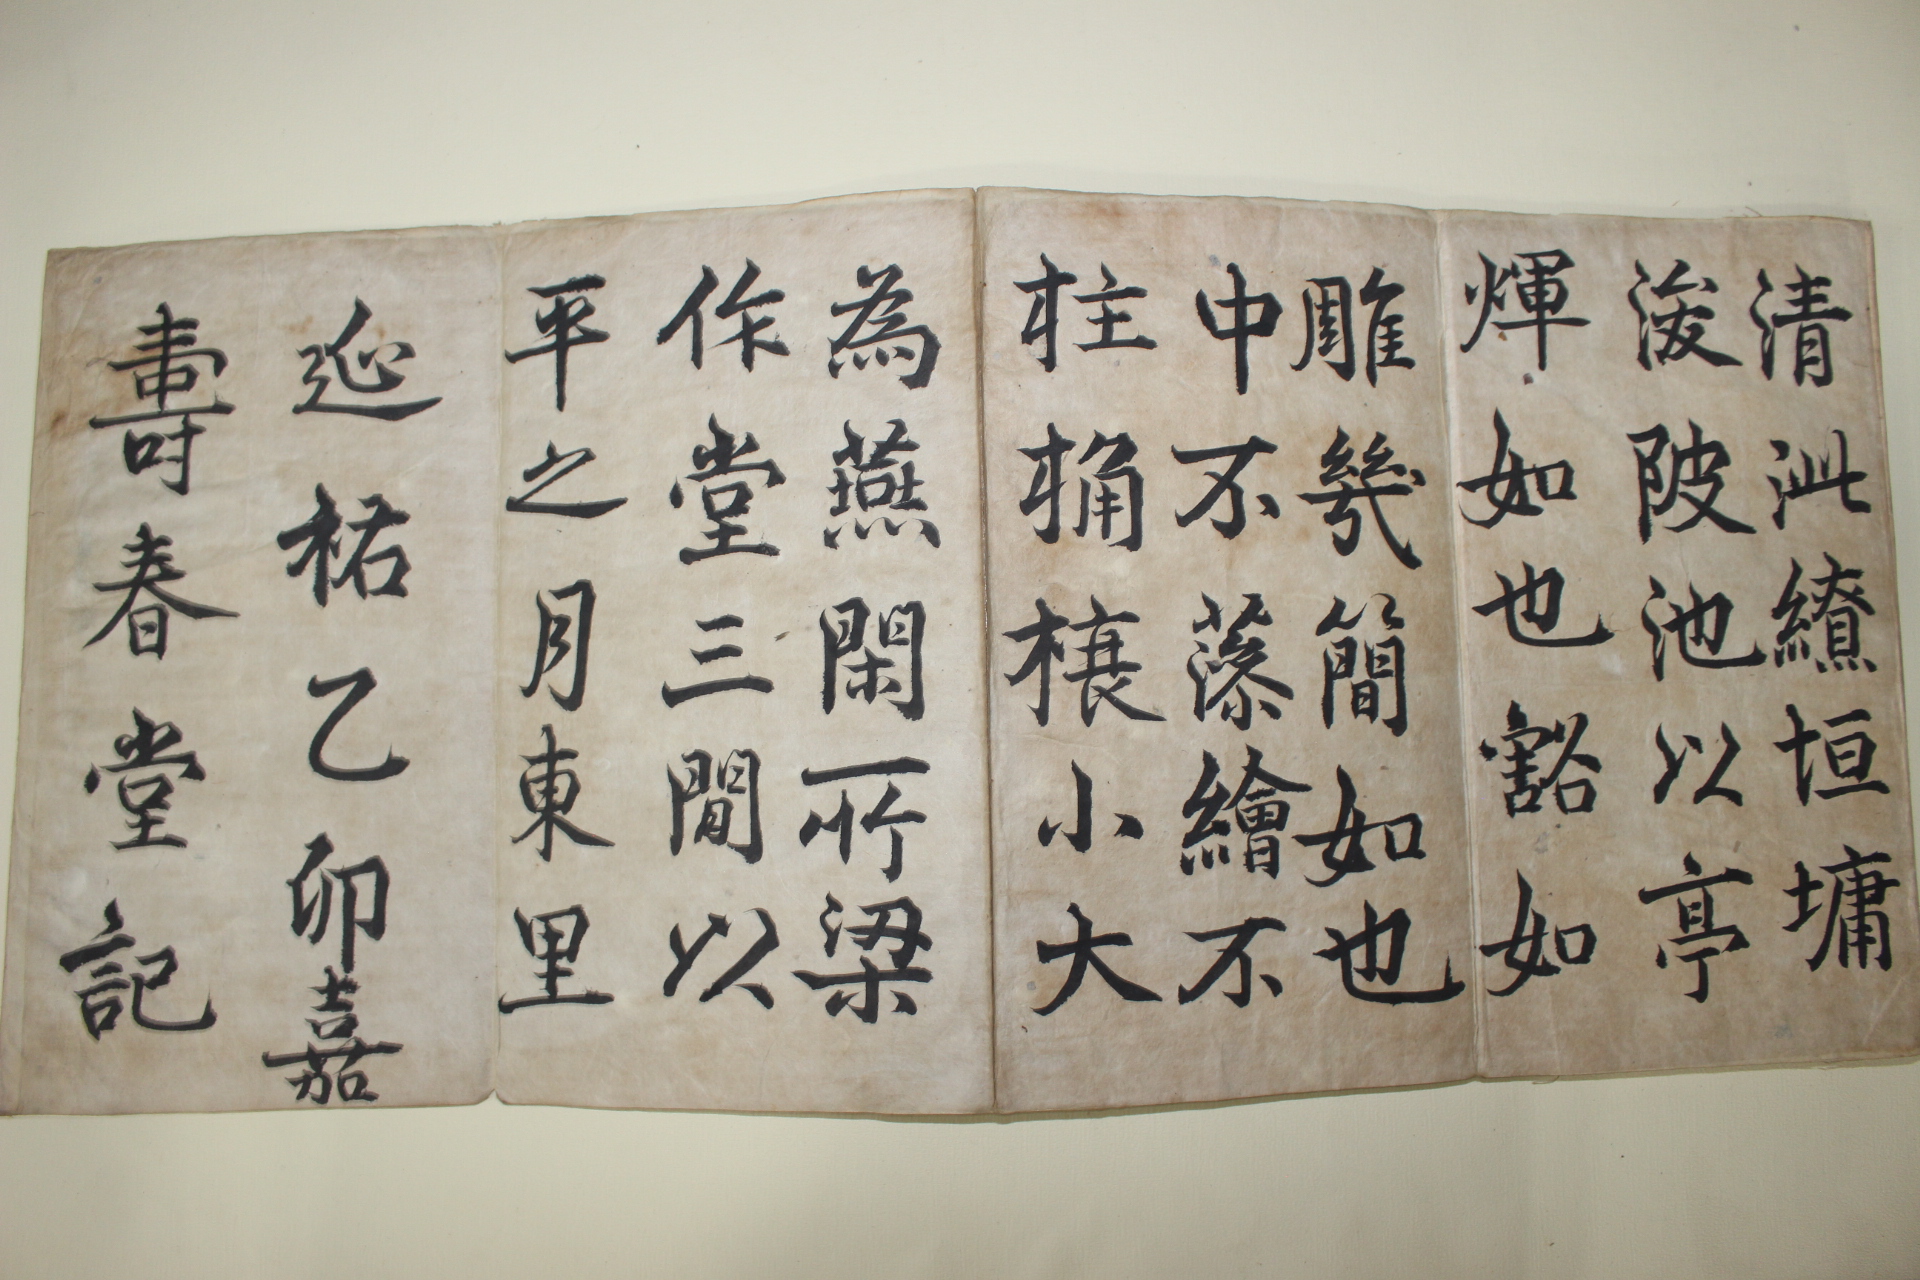 壽春堂記
延祐乙卯嘉
平之月東里
作堂三閒以
為燕閑所梁
柱桷榱小大
中不藻繪不
雕幾簡如也
煇如也豁如
浚陂池以亭
清泚繚垣墉